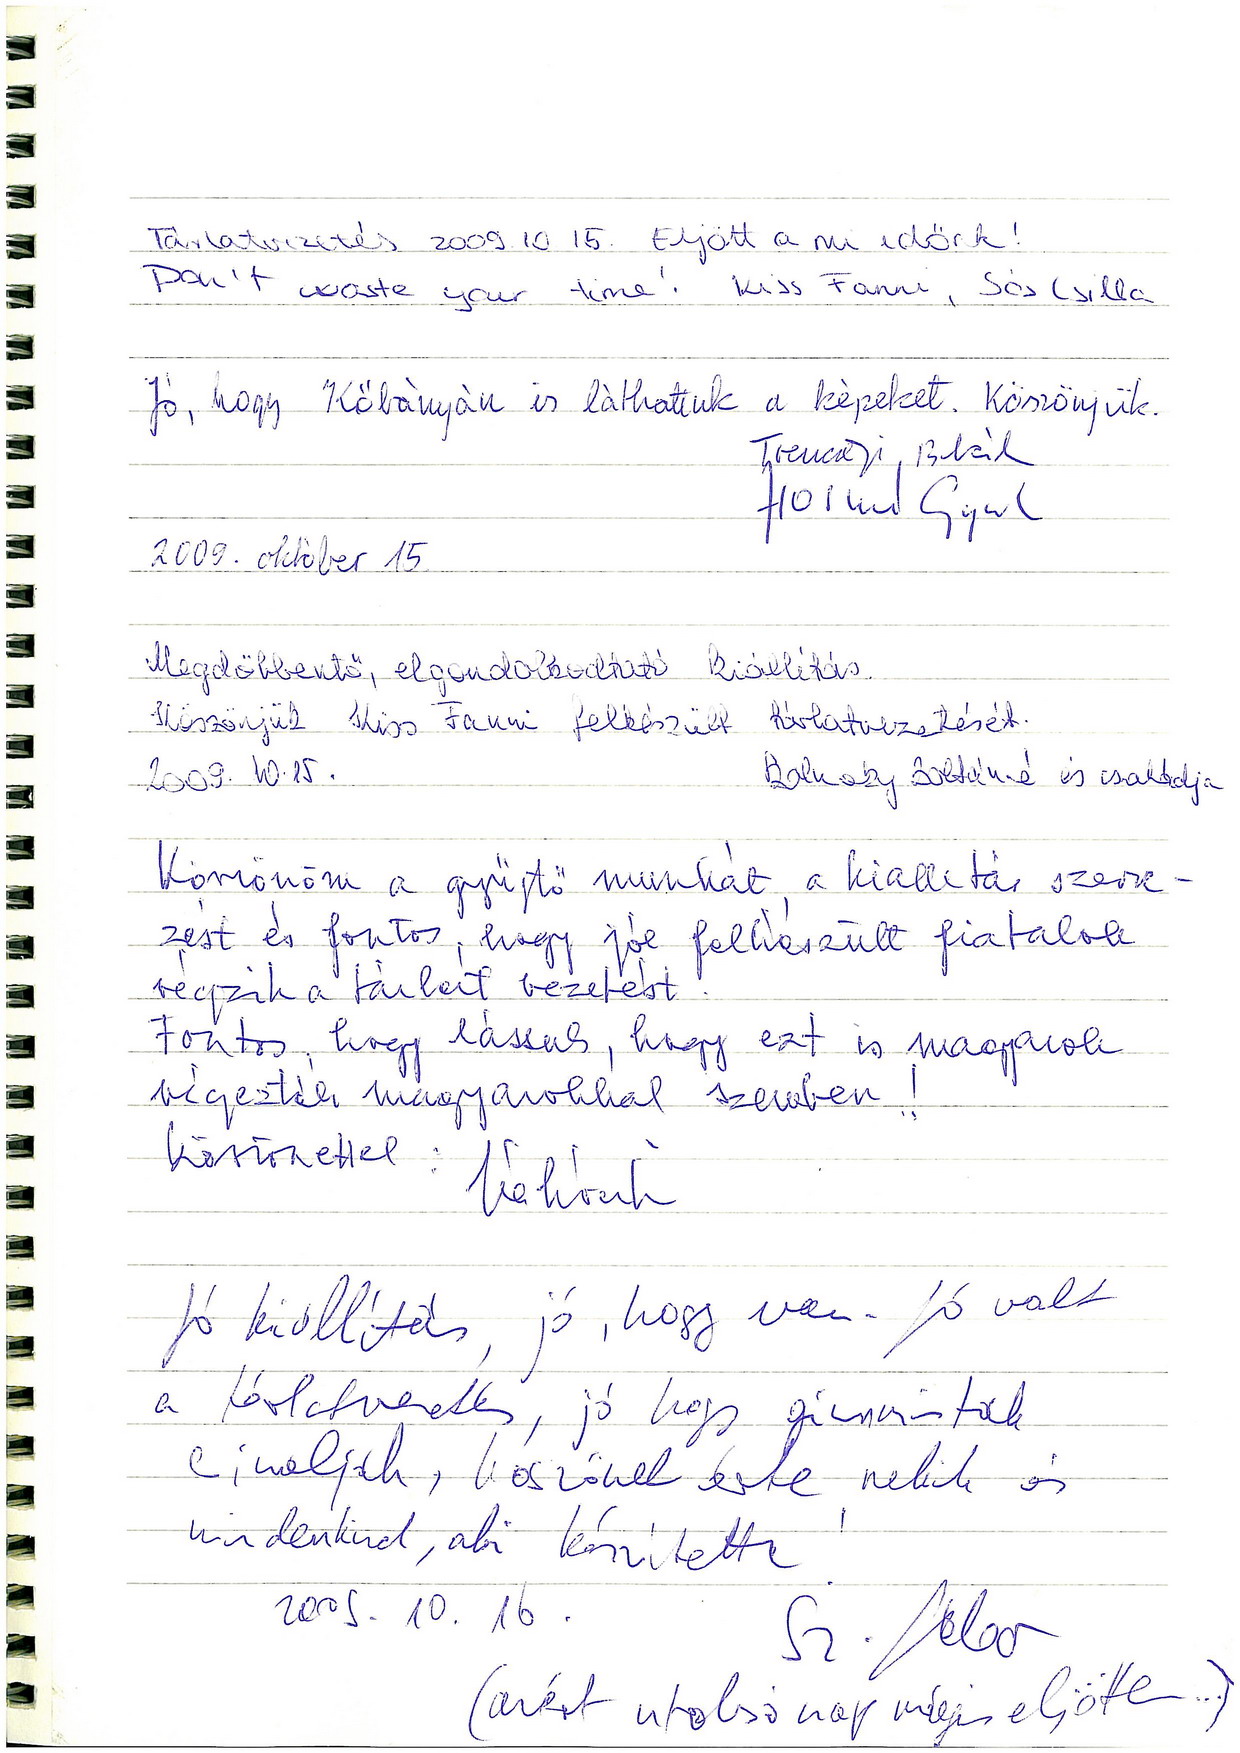 Tárlatvezetés 2009.10.15. Eljött a mi időnk!
Don't waste your time! Kiss Fanni, Sós Csilla
Jó, hogy Kőbányán is láthattuk a képeket. Köszönjük.
2009. október 15
Megdöbbentő, elgondolkodtató kiállítás.
Köszönjük Kiss Fanni felkészült tárlatvezetését.
2009. 10.15. Zoltánné és családja
Köszönöm a gyűjtő munkát, a kiallitás szerve-
zést és fontos, hogy jól felkészült fiatalok
végzik a tárlat vezetést!
Fontos, hogy lássuk, hogy ezt is magyarok
végezték magyarokkal szemben!
Köszönettel:
Jó kiállítás, jó, hogy van. Jó volt
a tárlatvezetés, jó hogy gimnazisták
csinálják, köszönet érte nekik és
mindenkinek, aki készítette!
2009. 10. 16.
Sz. Gábor
(azért utolsó nap mégis eljöttem...)